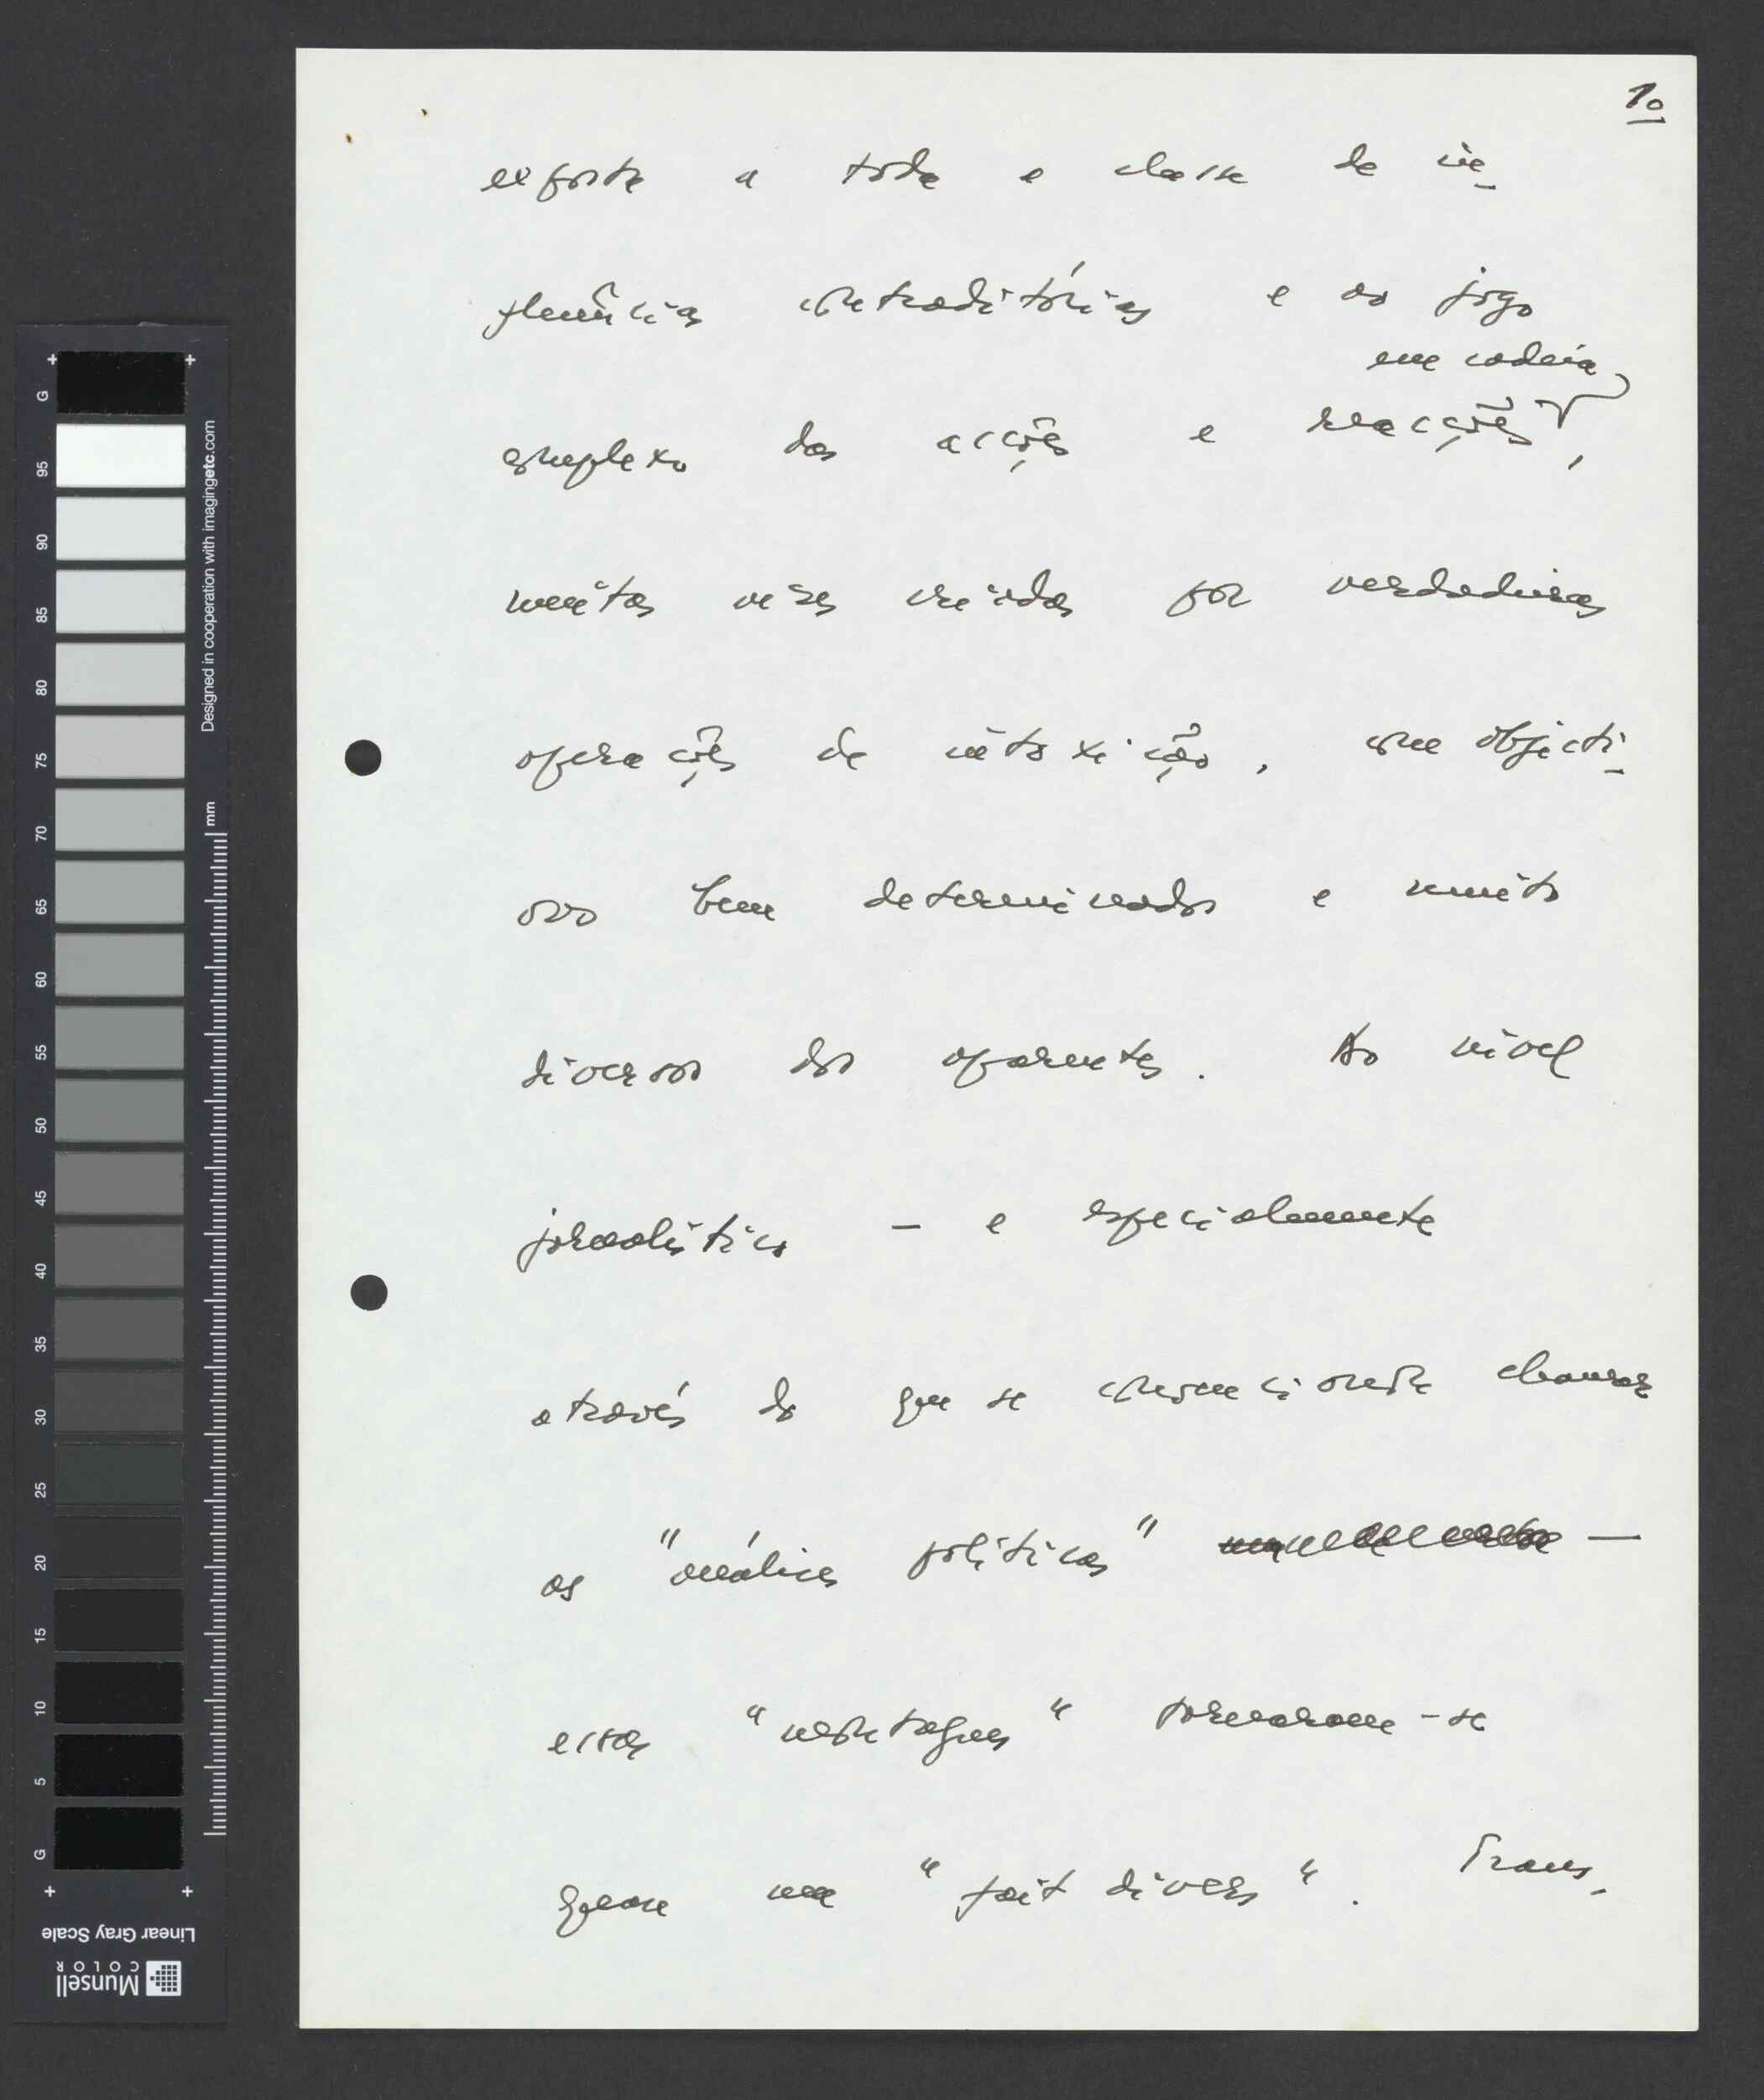 10
exposta a toda a classe de in-
fluências contraditórias e ao jogo
em cadeia
complexo das acções e reacções,
muitas vezes criadas por verdadeiras
operações de intoxicação, com objecti-
vos bem determinados e muito
diversos dos aparentes. Ao nível
jornalístico — e especialmente
através do que se convencionou chamar
as "análises políticas" —
essas "montagens" tornaram-se
quase um "fait divers". Trans-
G 95 90 85 80 75 70 65 60 55 50 45 40 35 30 25 20 15 10 5 G
Designed in cooperation with imagingetc.com
mm
Linear Gray Scale
Munsell
COLOR